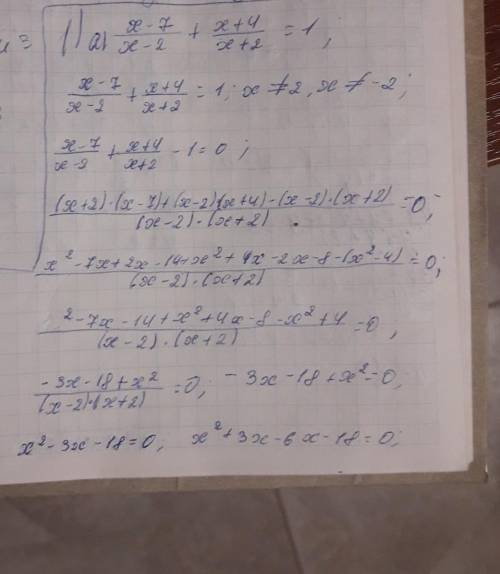 1) a) (x-7)/(x-2) + (x+4)/(x+2) = 1;
(x-7)/(x-2) + (x+4)/(x+2) = 1; x ≠ 2, x ≠ -2;
(x-7)/(x-2) + (x+4)/(x+2) - 1 = 0;
((x+2)·(x-7)+(x-2)·(x+4)-(x-2)·(x+2))/((x-2)·(x+2)) = 0;
(x²-7x+2x-14+x²+4x-2x-8-(x²-4))/((x-2)·(x+2)) = 0;
(²-7x-14+x²+4x-8-x²+4)/((x-2)·(x+2)) = 0,
(-3x-18+x²)/((x-2)·(x+2)) = 0; -3x-18+x²=0,
x²-3x-18=0; x²+3x-6x-18=0;